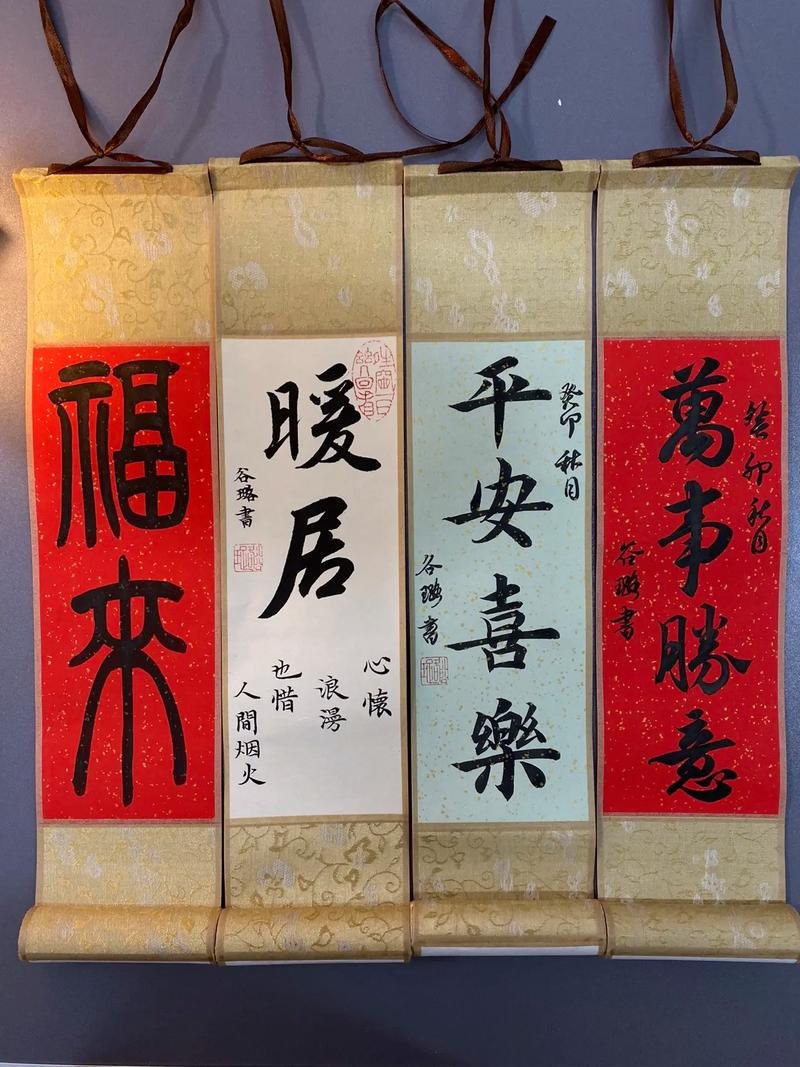 福來
暖居
谷璐書
心懷
浪漫
也惜
人間烟火
癸卯秋月
平安喜樂
谷璐書
癸卯秋月
萬事勝意
谷璐書